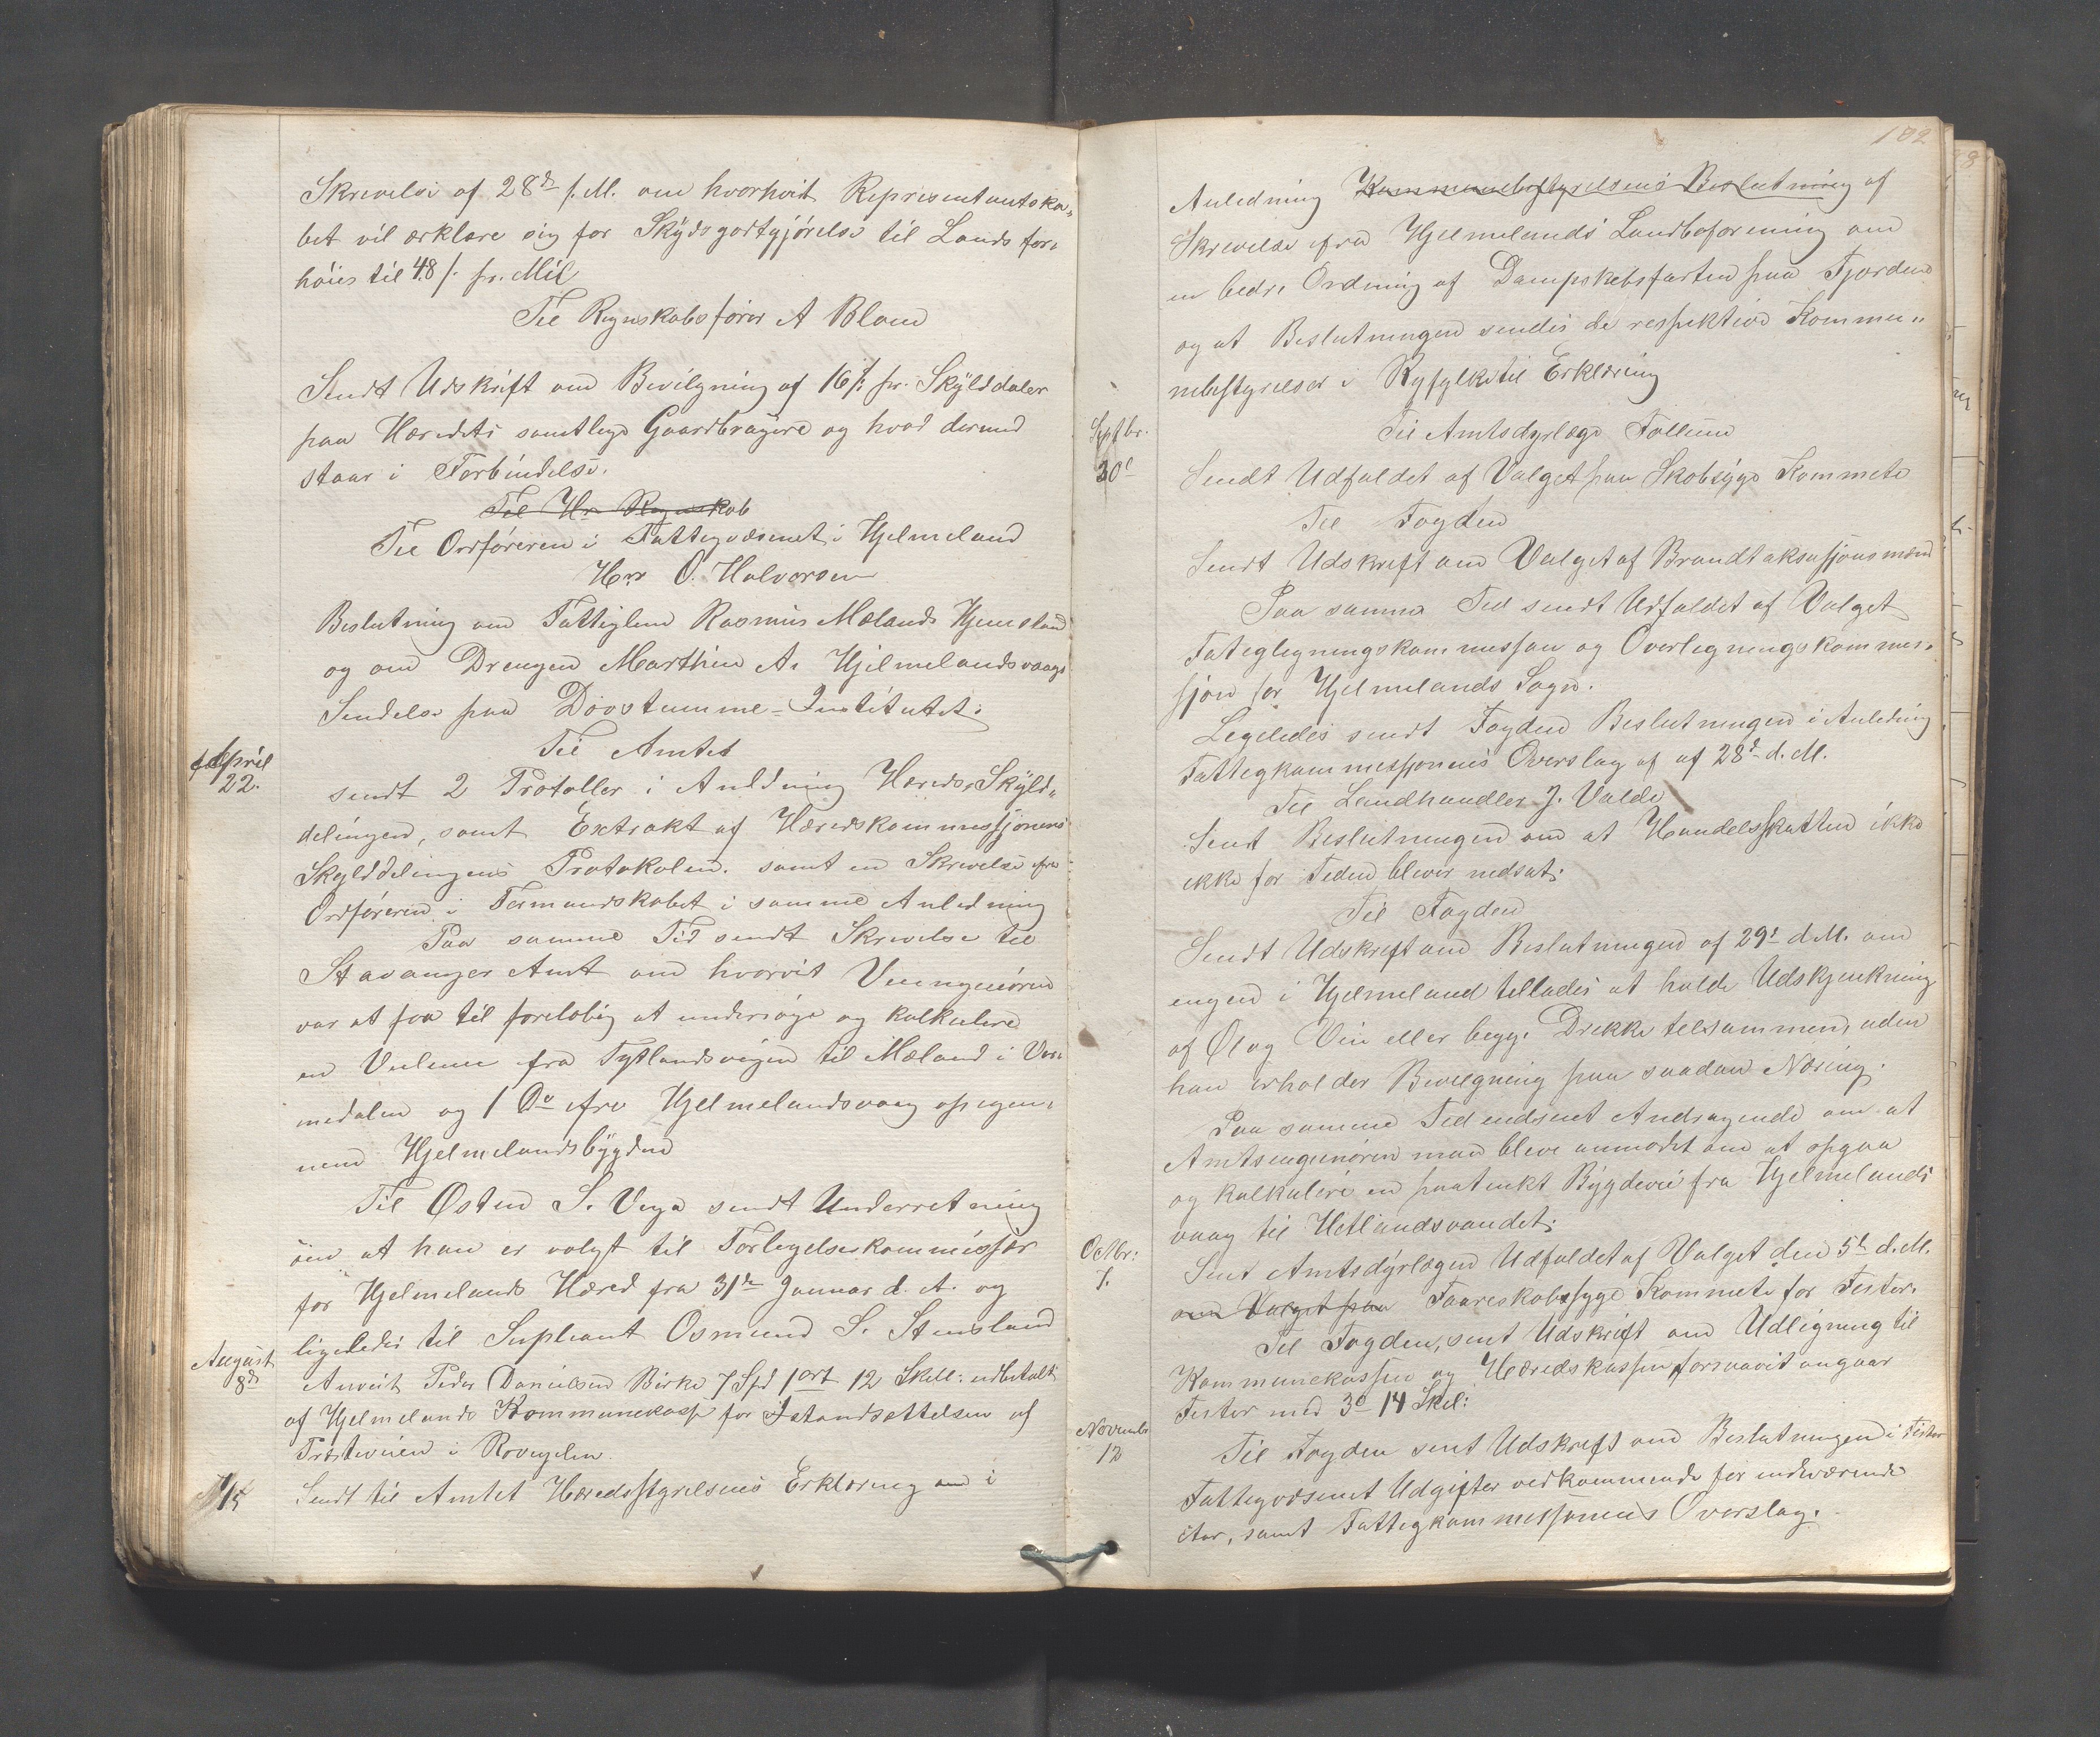 Skrivelse af 28de f. M. om hvorhvit Representantska„
bet vil ærklære sig for Skÿdsgodtgjörelse til Lands for„
höies til 48 /. pr. Mil
Til Regnskabsförer A Bloem
Sendt Udskrift om Bevilgning af 16 /: pr. Skÿlddaler
paa Heredets samtlege Gaardbrugere og hvad dermed
staar i Forbindelse.
Til Hr Regnskab
Til Ordföreren i Fattegvæsenet i Hjelmeland
Herr O. Halvorsen
Beslutning om Fattiglem Rasmus Mælands Hjemstand
og om Drengen Marthin A. Hjelmelandsvaags
Sendelse paa Dövstumme-Institutet:
April
22.
Til Amtet
sendt 2 Protoller i Anledning Hereds Skÿld„
delingen, samt Extrakt af Heredskommissjonens
Skylddelingens Protokolen. samt en Skrivelse fra
Ordföreren i Formandskabet i samme Anledning
Paa samme Tid sendt Skrivelse til
Stavanger Amt om hvorvit Veiingeniören
var at faa til forelöbig at undersöge og kalkulere
en Veilinie fra Tytlandsvigen til Mæland i Vor„
medalen og 1 Do fra Hjelmelandsvaag opigjen„
nem Hjelmelandsbÿgden
Til Østen S. Vega sendt Underretning
om at han er valgt til Forlegelseskommissær
for Hjelmelands Hered fra 31te Januar d. A. og
ligeledes til Supleant Osmund S. Stensland
August
8de
Anvist Peder Danielsen Birke 7 Spd 1 ort 12 Skill: udbetalt
af Hjelmelands Kommunekasse for Istandsættelsen af
Præsteveien i Rovegelen
15
Sendt til Amtet Heredsstyrelsens Erklæring om i
102
Anledning Kommunebestyrelsens Beslutning af
Skrivelse fra Hjelmelands Landboforening om
en bedre Ordning af Dampskibsfarten paa Fjorden
og at Beslutningen sendes de respektive Kommu„
nebestyrelser i Ryfylke til Erklæring
Septbr.
30t
Til Amtsdyrlæge Follum
Sendt Udfaldet af Valget paa Skabsyge Kommete
Til Fogden
Sendt Udskrift om Valget af Brandtaksasjonsmænd
Paa samme Tid sendt Udfaldet af Valget
Fateglegningskommissjon og Overlegningskommis„
sjon for Hjelmelands Sogn.
Legeledes sendt Fogden Beslutningen i Anledning
Fattegkommessjonens Overslag af af 28de d. M.
Til Landhandler J. Valde
Sent Beslutningen om at Handelsskatten ikke
ikke for Tiden blever nedsat:
Til Fogden
Sendt Udskrift om Beslutningen af 29de d M. om
engen i Hjelmeland tellades at holde Udskjenkning
af Øl og Vin eller begge Drikke telsammen, uden
han erholder Bevilgning paa saadan Næring.
Paa samme Tid indsent Andragende om at
Amtsengeniören maa bleve anmodet om at opgaa
og kalkulere en paatenkt Bÿgdevei fra Hjelmelands
vaag til Hetlandsvandet:
Octbr:
7.
Sent Amtsdÿrlægen Udfaldet af Valget den 5t d. M.
om Valget paa Faareskabssyge Kommete for Fister.
Til Fogden, sent Udskrift om Udligning til
Kommunekassen og Heredskassen forsaavit angaar
Fister med 3d 14 Skil:
Novembr
12
Til Fogden sent Udskrift om Beslutningen i Fister
Fattegvæsenet Udgifter vedkommende for indeværende
Aar, samt Fattegkommessjonens Overslag.